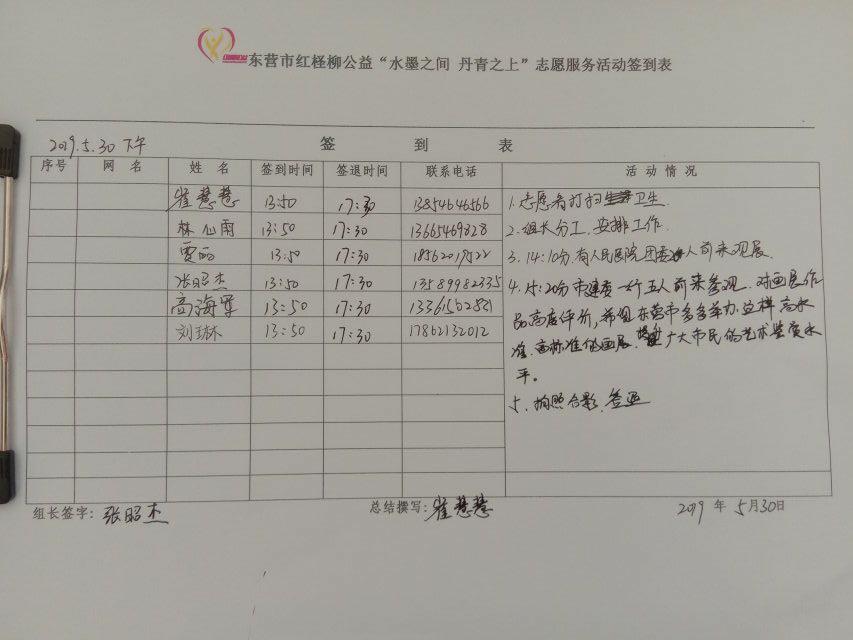 东营市红柽柳公益“水墨之间 丹青之上”志愿服务活动签到表
2019.5.30 下午
签 到 表
序号 网名 姓名 签到时间 签退时间 联系电话 活动情况
崔慧慧 13:50 17:30 13854646566
林心雨 13:50 17:30 13665469828
贾丽 13:50 17:30 18562019522
张昭杰 13:50 17:30 13589982335
高海军 13:50 17:30 13361502821
刘琳 13:50 17:30 17862132012
1. 志愿者打扫卫生
2. 组长分工,安排工作.
3. 14:10分,有人民医院团委人前来观展.
4. 15:20分市建委一行五人前来参观.对画展作
品高度评价,希望东营市多多举办这样高水
准.高标准的画展.提升广大市民的艺术鉴赏水
平。
5. 拍照合影.签退
组长签字: 张昭杰 总结撰写: 崔慧慧 2019 年 5月30日